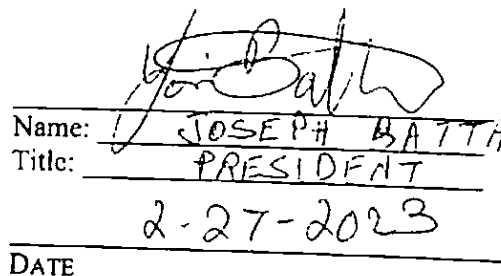 Name: JOSEPH BATTA
Title: PRESIDENT
2-27-2023
DATE